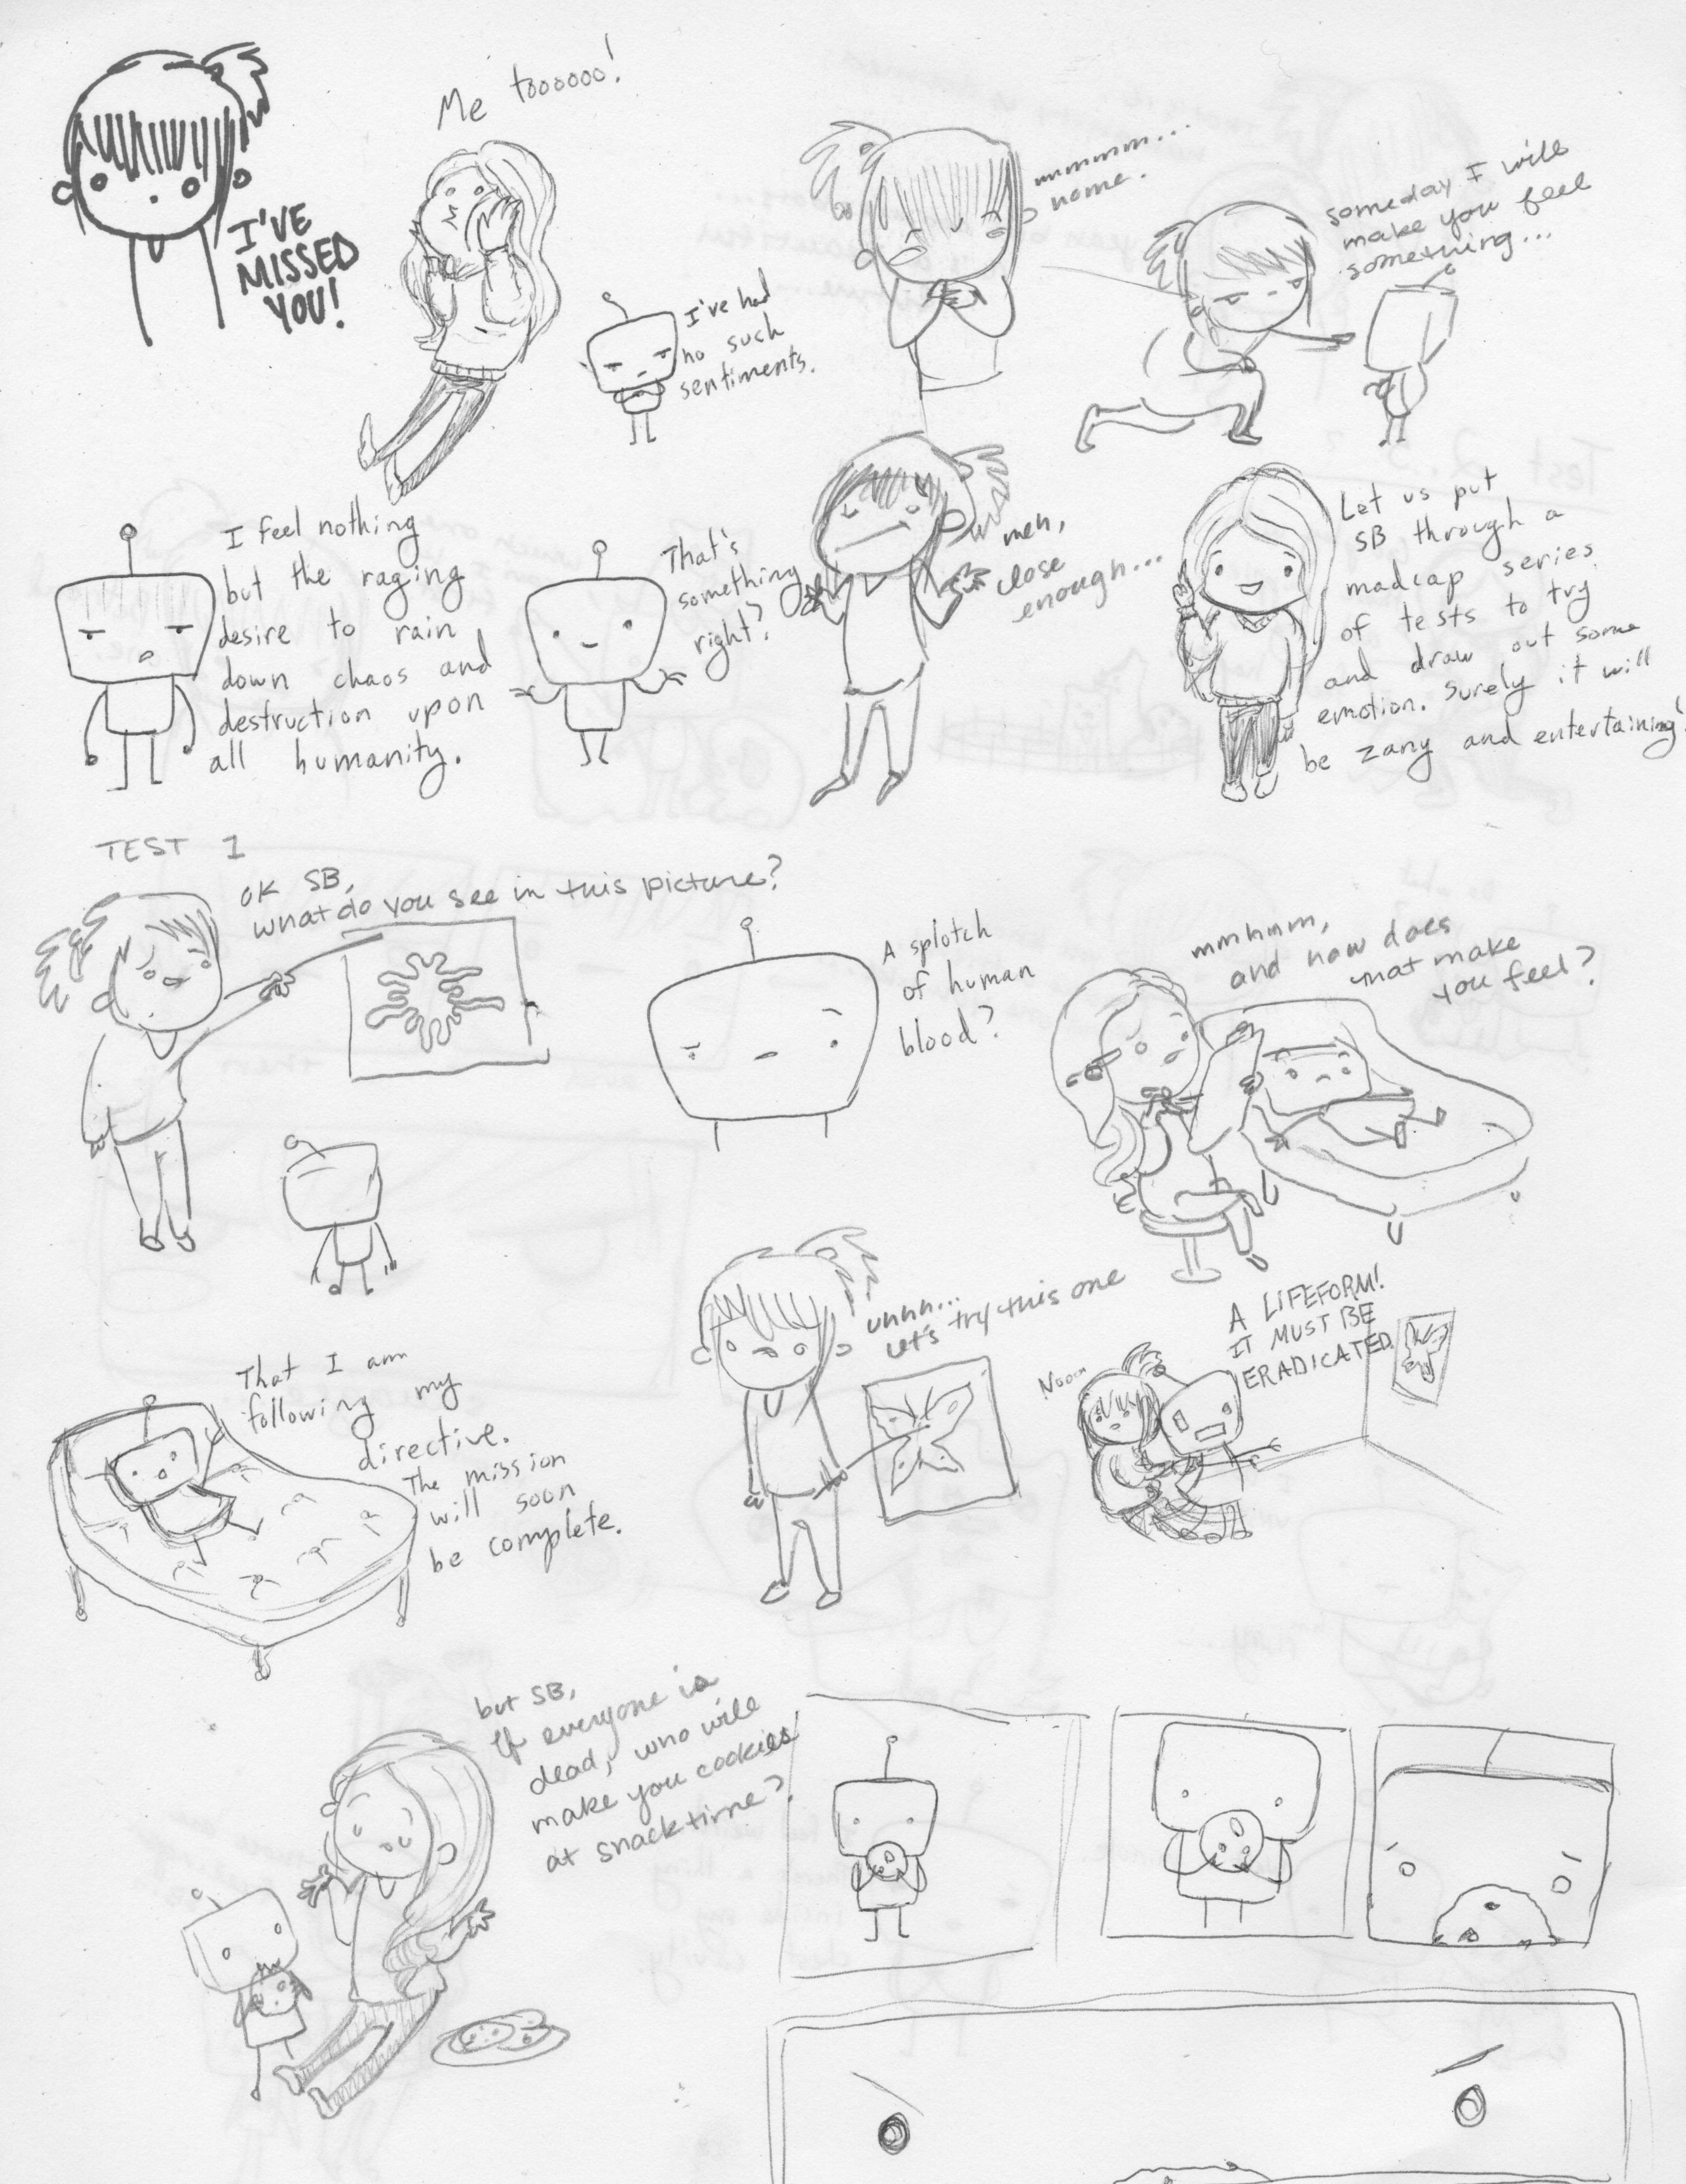 I'VE
MISSED
YOU!
Me toooooo!
I've had
no such
sentiments.
mmmmm...
nome.
someday I will
make you feel
something...
I feel nothing
but the raging
desire to rain
down chaos and
destruction upon
all humanity.
That's
something
right?
meh,
close
enough...
Let us put
SB through a
madcap series
of tests to try
and draw out some
emotion. Surely it will
be zany and entertaining!
TEST 1
OK SB,
what do you see in this picture?
A splotch
of human
blood?
mmhmm,
and how does
that make
you feel?
That I am
following my
directive.
The mission
will soon
be complete.
uhhh...
let's try this one
Nooo
A LIFEFORM!
IT MUST BE
ERADICATED.
but SB,
If everyone is
dead, who will
make you cookies
at snacktime?
Test 2.5